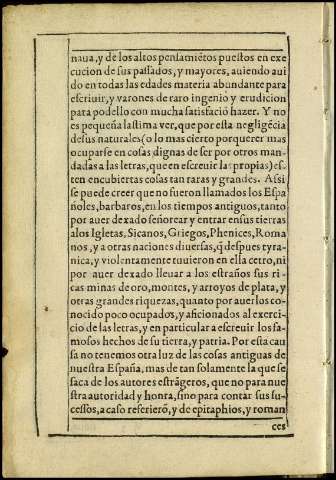 naua, y de los altos pensamiẽtos puestos en exe
cucion de sus passados, y mayores, auiendo aui
do en todas las edades materia abundante para
escriuir, y varones de raro ingenio y erudicion
para podello con mucha satisfació hazer. Y no
es pequeña lastima ver, que por esta negligẽcia
de sus naturales (o lo mas cierto por querer mas
ocuparse en cosas dignas de ser por otros man-
dadas a las letras, que en escreuir las propias) es-
ten encubiertas cosas tan raras y grandes. Assi
se puede creer que no fueron llamados los Espa
ñoles, barbaros, en los tiempos antiguos, tanto
por auer dexado señorear y entrar en sus tierras
a los Igletas, Sicanos, Griegos, Phenices, Roma
nos, y a otras naciones diuersas, q̃ despues tyra-
nica, y violentamente tuuieron en ella cetro, ni
por auer dexado lleuar a los estraños sus ri-
cas minas de oro, montes, y arroyos de plata, y
otras grandes riquezas, quanto por auerlos co-
nocido poco ocupados, y aficionados al exerci-
cio de las letras, y en particular a escreuir los fa-
mosos hechos de su tierra, y patria. Por esta cau
sa no tenemos otra luz de las cosas antiguas de
nuestra España, mas de tan solamente la que se
saca de los autores estrãgeros, que no para nue
stra autoridad y honra, sino para contar sus su-
cessos, a caso refirieró, y de epitaphios, y roman
ces